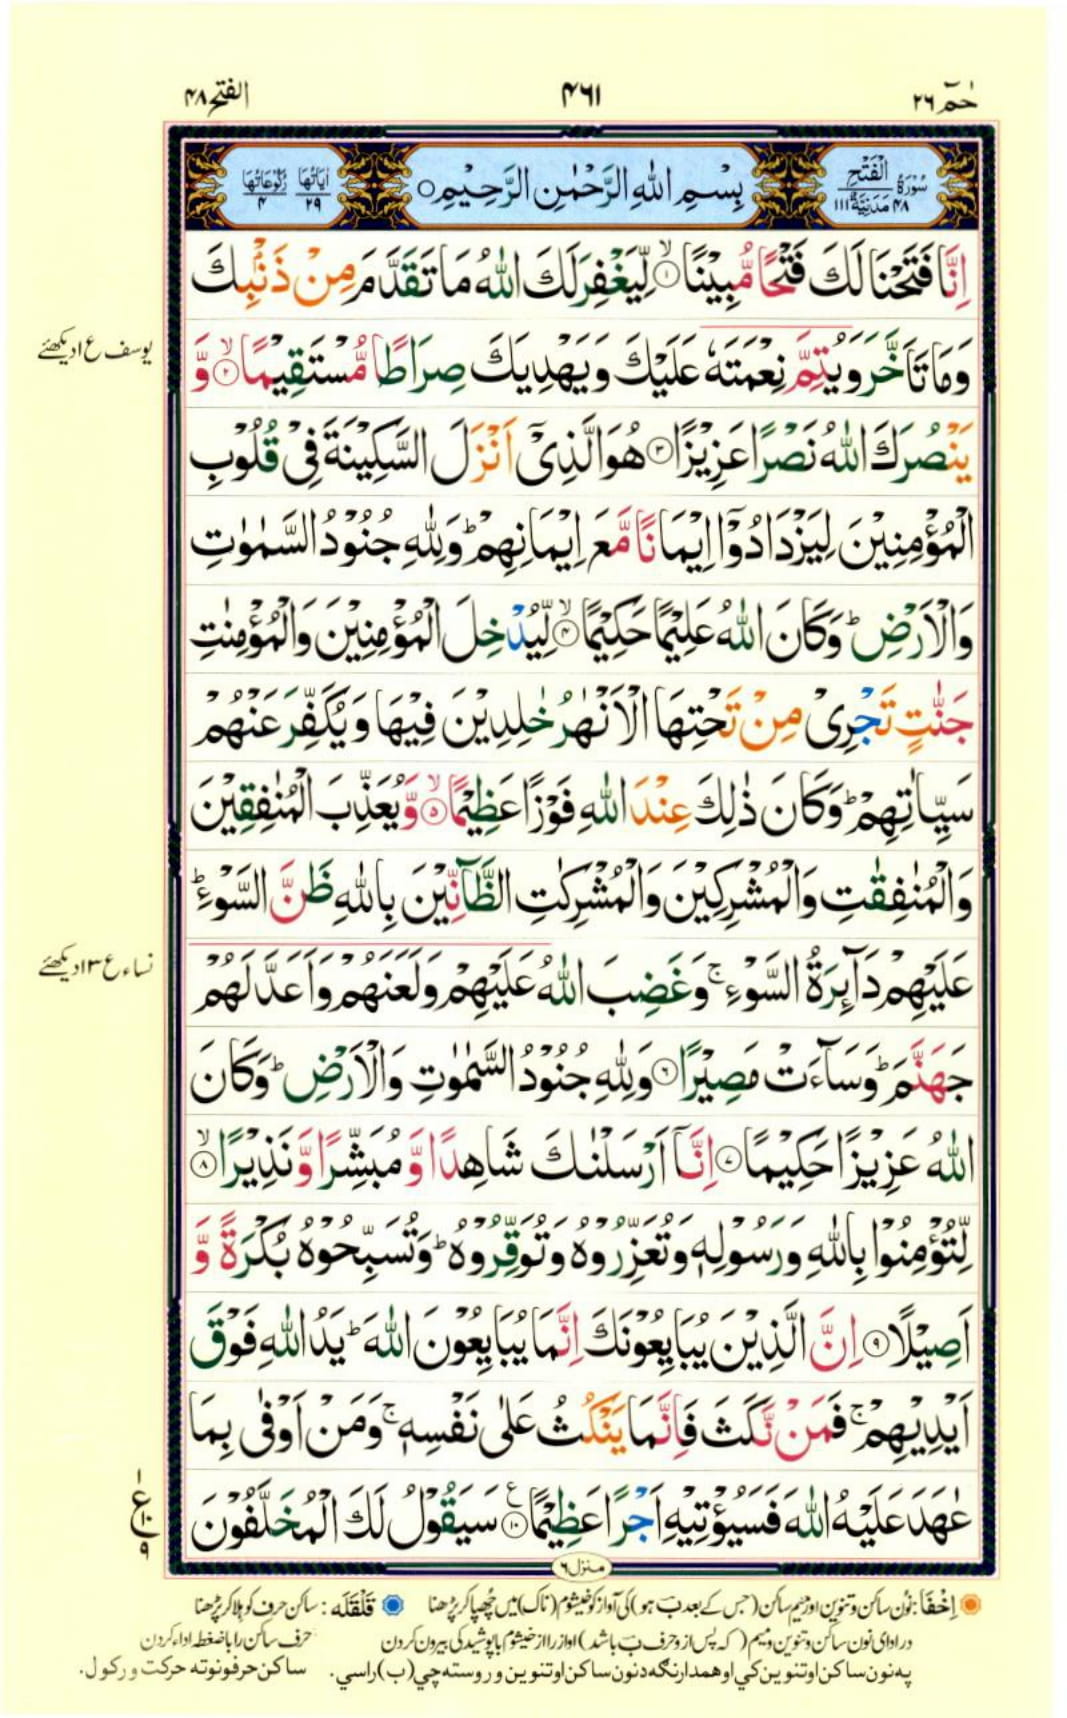 حٰمٓ ۲۶
۴۶۱
الفتح ۴۸
سُوْرَةُ الْفَتْحِ ۴۸ مَدَنِيَّةٌ ۱۱۱
بِسْمِ اللهِ الرَّحْمٰنِ الرَّحِيْمِ ○
اٰيَاتُهَا ۲۹ رُكُوْعَاتُهَا ۴
اِنَّا فَتَحْنَا لَكَ فَتْحًا مُّبِيْنًا ۙ﴿۱﴾ لِّيَغْفِرَ لَكَ اللهُ مَا تَقَدَّمَ مِنْ ذَنْۢبِكَ
وَمَا تَاَخَّرَ وَيُتِمَّ نِعْمَتَهٗ عَلَيْكَ وَيَهْدِيَكَ صِرَاطًا مُّسْتَقِيْمًا ۙ﴿۲﴾ وَّ
يوسف ع ۱ ديكھئے
يَنْصُرَكَ اللهُ نَصْرًا عَزِيْزًا ﴿۳﴾ هُوَ الَّذِيْۤ اَنْزَلَ السَّكِيْنَةَ فِيْ قُلُوْبِ
الْمُؤْمِنِيْنَ لِيَزْدَادُوْۤا اِيْمَانًا مَّعَ اِيْمَانِهِمْ ؕ وَلِلّٰهِ جُنُوْدُ السَّمٰوٰتِ
وَالْاَرْضِ ؕ وَكَانَ اللهُ عَلِيْمًا حَكِيْمًا ۙ﴿۴﴾ لِّيُدْخِلَ الْمُؤْمِنِيْنَ وَالْمُؤْمِنٰتِ
جَنّٰتٍ تَجْرِيْ مِنْ تَحْتِهَا الْاَنْهٰرُ خٰلِدِيْنَ فِيْهَا وَيُكَفِّرَ عَنْهُمْ
سَيِّاٰتِهِمْ ؕ وَكَانَ ذٰلِكَ عِنْدَ اللهِ فَوْزًا عَظِيْمًا ۙ﴿۵﴾ وَّيُعَذِّبَ الْمُنٰفِقِيْنَ
وَالْمُنٰفِقٰتِ وَالْمُشْرِكِيْنَ وَالْمُشْرِكٰتِ الظَّآنِّيْنَ بِاللهِ ظَنَّ السَّوْءِ ؕ
عَلَيْهِمْ دَآئِرَةُ السَّوْءِ ۚ وَغَضِبَ اللهُ عَلَيْهِمْ وَلَعَنَهُمْ وَاَعَدَّ لَهُمْ
نساء ع ۱۳ ديكھئے
جَهَنَّمَ ؕ وَسَآءَتْ مَصِيْرًا ﴿۶﴾ وَلِلّٰهِ جُنُوْدُ السَّمٰوٰتِ وَالْاَرْضِ ؕ وَكَانَ
اللهُ عَزِيْزًا حَكِيْمًا ﴿۷﴾ اِنَّاۤ اَرْسَلْنٰكَ شَاهِدًا وَّمُبَشِّرًا وَّنَذِيْرًا ۙ﴿۸﴾
لِّتُؤْمِنُوْا بِاللهِ وَرَسُوْلِهٖ وَتُعَزِّرُوْهُ وَتُوَقِّرُوْهُ ؕ وَتُسَبِّحُوْهُ بُكْرَةً وَّ
اَصِيْلًا ﴿۹﴾ اِنَّ الَّذِيْنَ يُبَايِعُوْنَكَ اِنَّمَا يُبَايِعُوْنَ اللهَ ؕ يَدُ اللهِ فَوْقَ
اَيْدِيْهِمْ ۚ فَمَنْ نَّكَثَ فَاِنَّمَا يَنْكُثُ عَلٰى نَفْسِهٖ ۚ وَمَنْ اَوْفٰى بِمَا
عٰهَدَ عَلَيْهُ اللهَ فَسَيُؤْتِيْهِ اَجْرًا عَظِيْمًا ﴿۱۰﴾ ع سَيَقُوْلُ لَكَ الْمُخَلَّفُوْنَ
۱ ع ۱۰ ۹
منزل ۶
اِخْفَا: نون ساکن و تنوین اور میم ساکن (جس کے بعد ب ہو) کی آواز کو خیشوم (ناک) میں چھپا کر پڑھنا قَلْقَلَه: ساکن حرف کو ہلا کر پڑھنا
در ادای نون ساکن و تنوین و میم (که پس از و حرف ب باشد) آواز را از خیشوم با پوشیدگی بیرون کردن حرف ساکن را با ضغطه اداء کردن
په نون ساکن او تنوین کي او همدارنګه د نون ساکن او تنوین وروسته چي (ب) راسي. ساکن حرفونو ته حرکت ورکول.